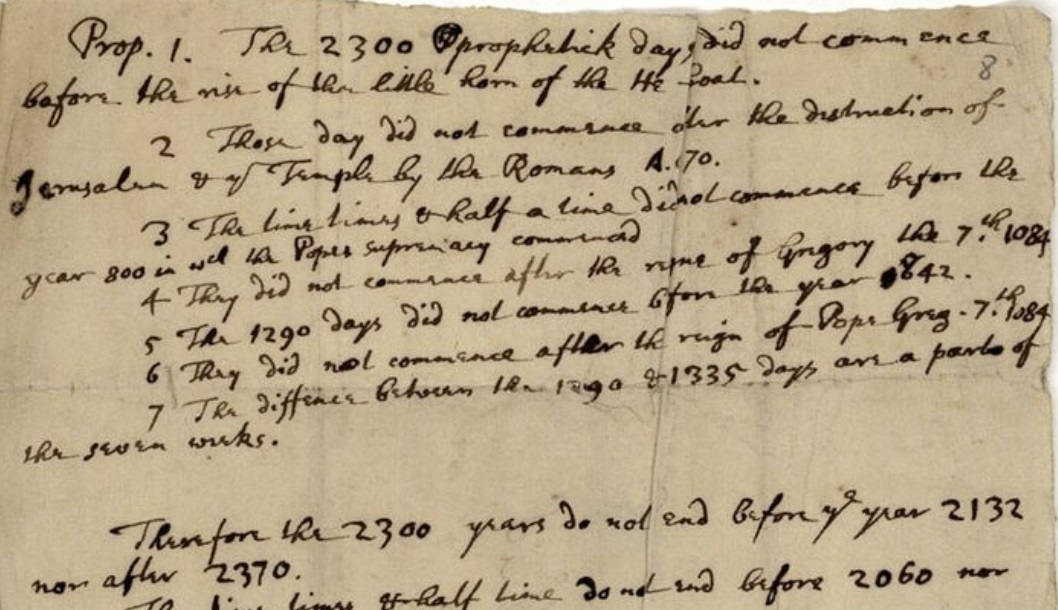 Prop. 1. The 2300 prophetick days did not commence
before the rise of the little horn of the He Goat.
8
2 Those day did not commence after the destruction of
Jerusalem & ye Temple by the Romans A. 70.
3 The time times & half a time did not commence before the
year 800 in wch the Popes supremacy commenced
4 They did not commence after the reigne of Gregory the 7th. 1084
5 The 1290 days did not commence before the year 842.
6 They did not commence after the reign of Pope Greg. 7th. 1084
7 The diffence between the 1290 & 1335 days are a parts of
the seven weeks.
Therefore the 2300 years do not end before ye year 2132
nor after 2370.
The time times & half time do not end before 2060 nor